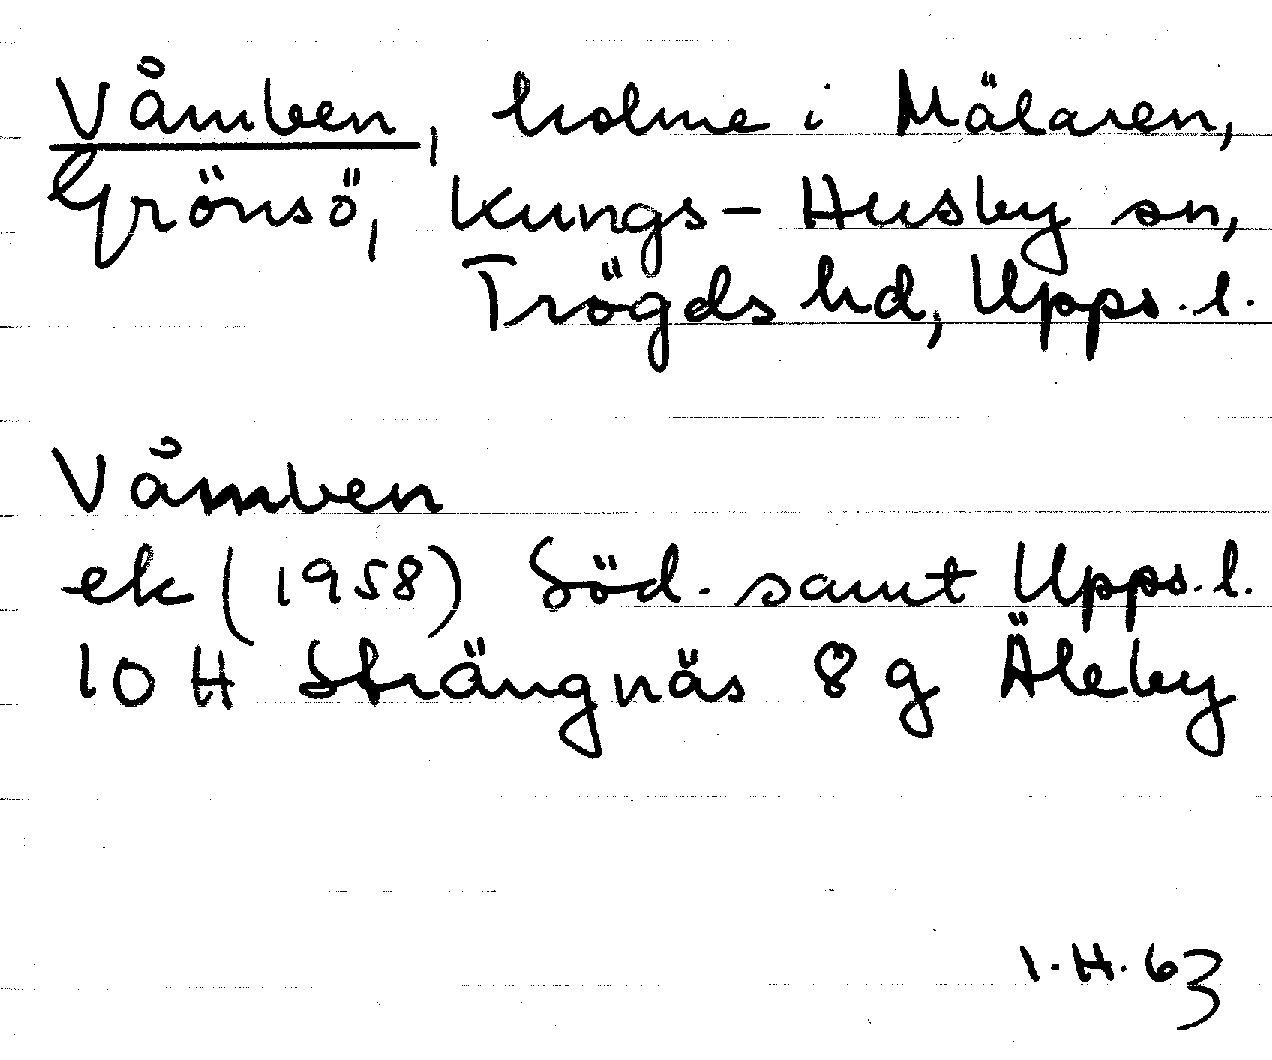 Våmben, holme i Mälaren,
Grönsö, Kungs-Husby sn,
Trögds hd, Upps. l.
Våmben
ek (1958) Söd. samt Upps. l.
10 H Strängnäs 8 g Äleby
I.H. 63